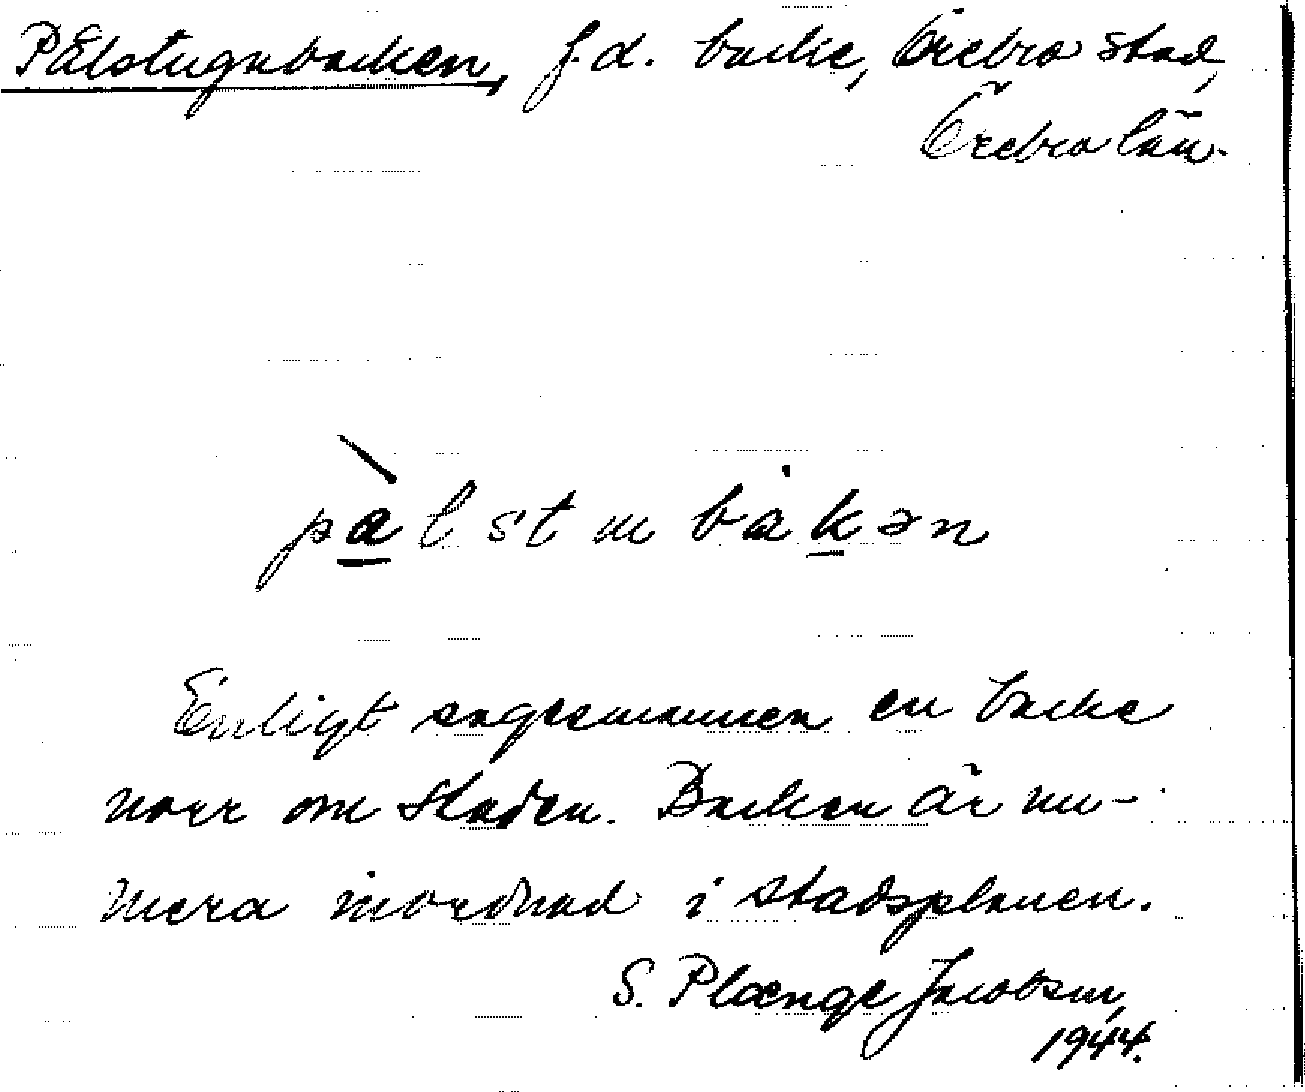 Pålstugubacken, f.d. backe, Örebro stad,
Örebro län.
Enligt sagesmannen en backe
norr om staden. Backen är nu-
mera inordnad i stadsplanen.
S. Plænge Jacobson,
1944.